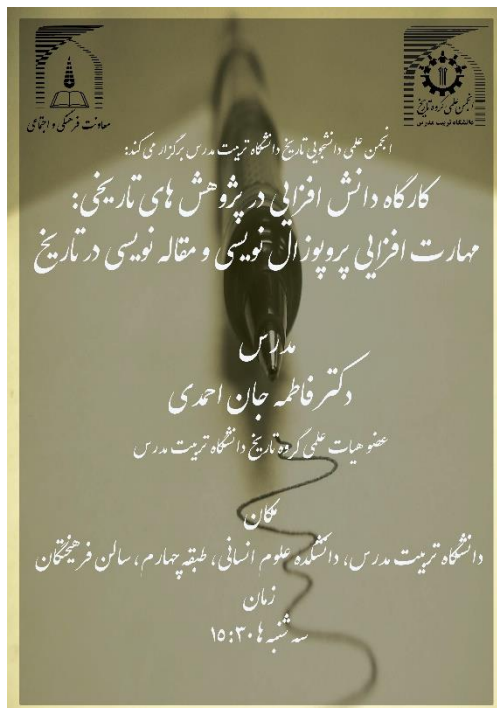 معاونت فرهنگی و اجتماعی
انجمن علمی گروه تاریخ
دانشگاه تربیت مدرس
انجمن علمی دانشجویی تاریخ دانشگاه تربیت مدرس برگزار می کند:
کارگاه دانش افزایی در پژوهش های تاریخی:
مهارت افزایی پروپوزال نویسی و مقاله نویسی در تاریخ
مدرس
دکتر فاطمه جان احمدی
عضو هیات علمی گروه تاریخ دانشگاه تربیت مدرس
مکان
دانشگاه تربیت مدرس، دانشکده علوم انسانی، طبقه چهارم، سالن فرهیختگان
زمان
سه شنبه ها ۱۵:۳۰